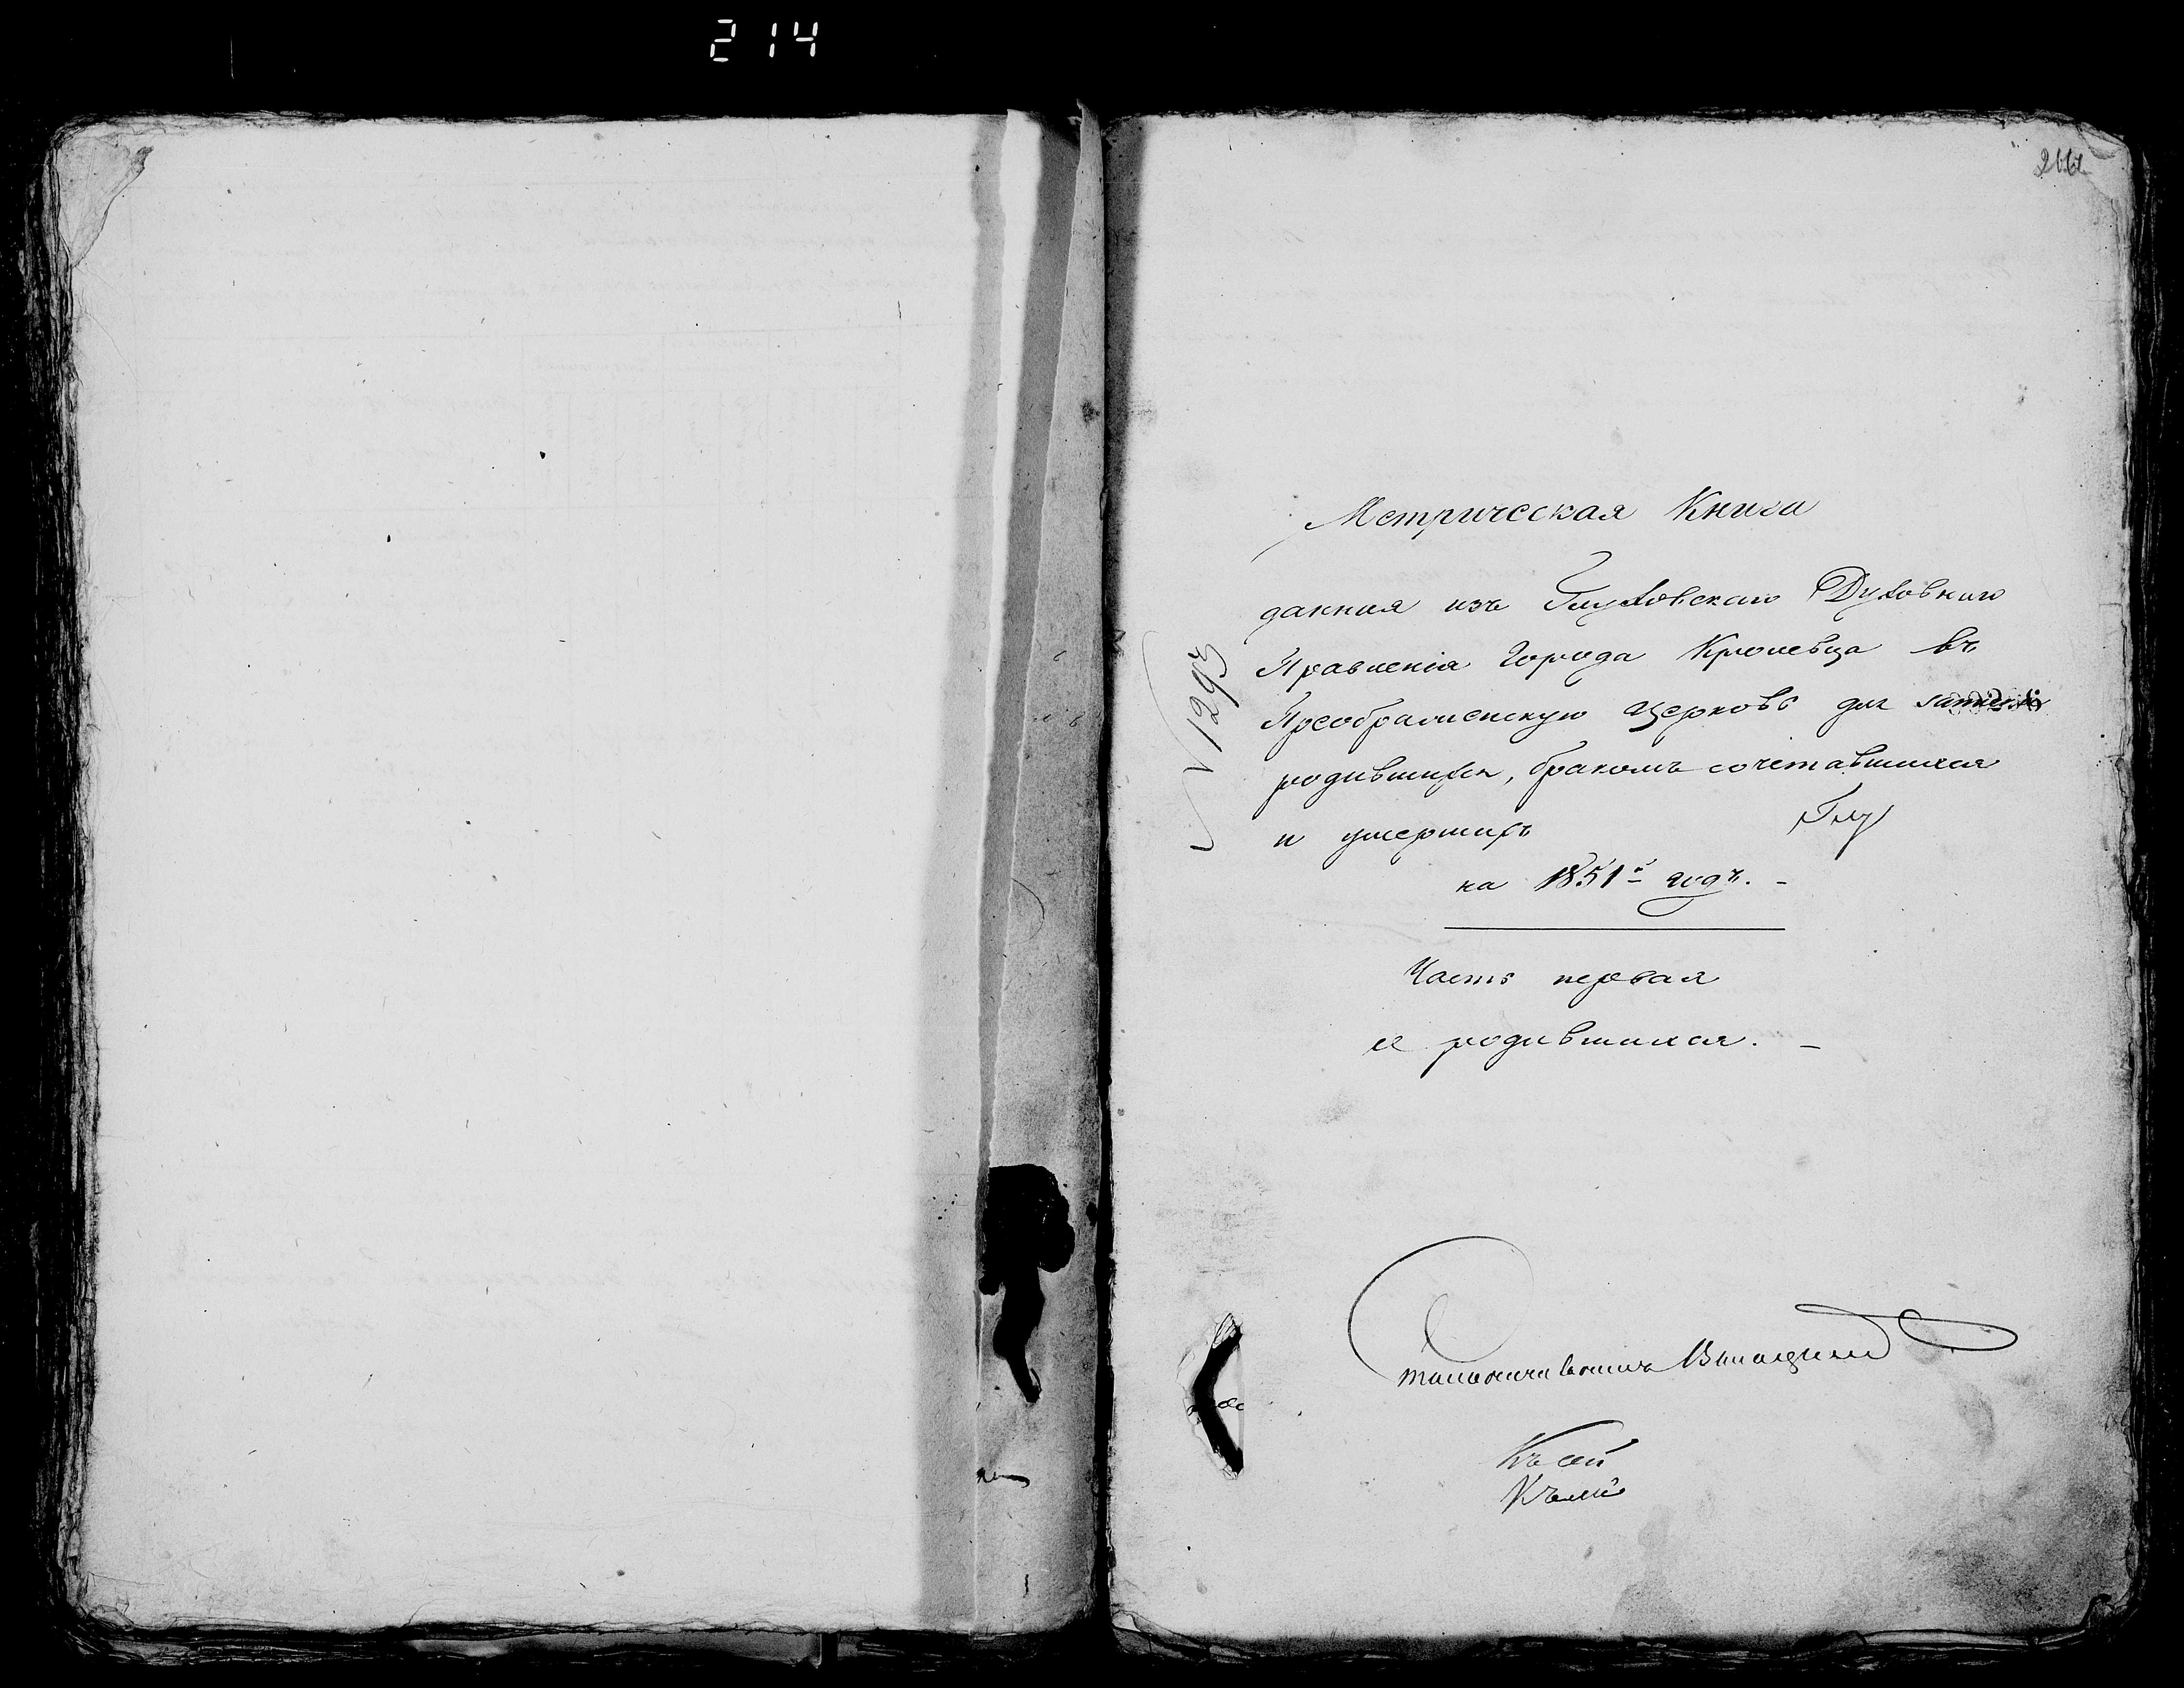 214
Метрическая Книга
данная изъ Глуховскаго Духовнаго
Правленія Города Кролевца въ
Преображенскую Церковь для записки
родившихся, бракомъ сочетавшихся
и умершихъ
Глу
на 1851й годъ. -
Часть первая
о родившихся. -
N 1293